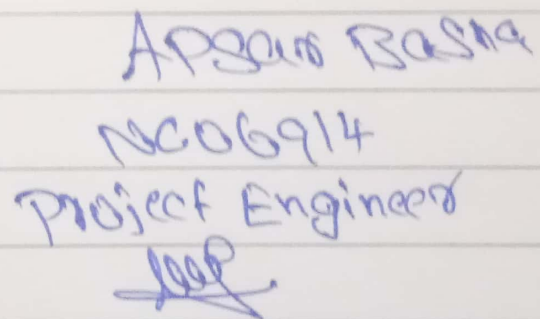 Apsar Basha
NC06914
Project Engineer